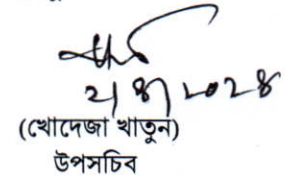 ২/৪/২০২৪
(খোদেজা খাতুন)
উপসচিব